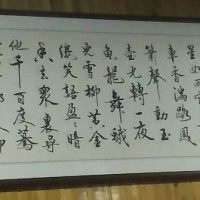 星如
車香滿路鳳
簫聲動玉
壺光轉一夜
魚龍舞蛾
兒雪柳黃金
縷笑語盈盈暗
香去衆裏尋
他千百度驀